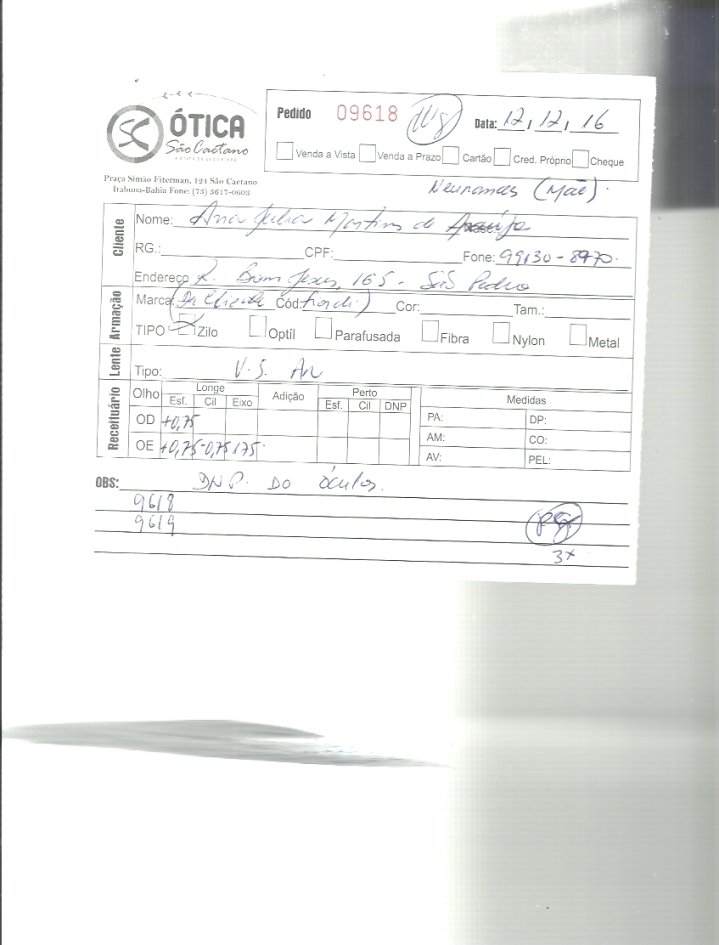 ÓTICA
São Caetano
Praça Simão Fiterman, 124 São Caetano
Itabuna-Bahia Fone: (73) 3617-0603
Pedido 09618 Data: 12, 12, 16
Venda a Vista Venda a Prazo Cartão Créd. Próprio Cheque
(Mãe).
Cliente
Nome: Ana Julia Martins de Araújo
RG.: CPF: Fone: 99130-8970.
Endereço R. Bom Jesus, 165 - São Pedro
Armação
Marca: (Da Cliente Cód: Cor: Tam.:
TIPO Zilo Optíl Parafusada Fibra Nylon Metal
Lente
Tipo: V.S. AR
Receituário
Olho Longe Adição Perto Medidas
Esf. Cil Eixo Esf. Cil DNP
OD +0,75 PA: DP:
AM: CO:
OE +0,75 -0,75 175 AV: PEL:
OBS: DNP. DO óculos.
9618
9619
3x